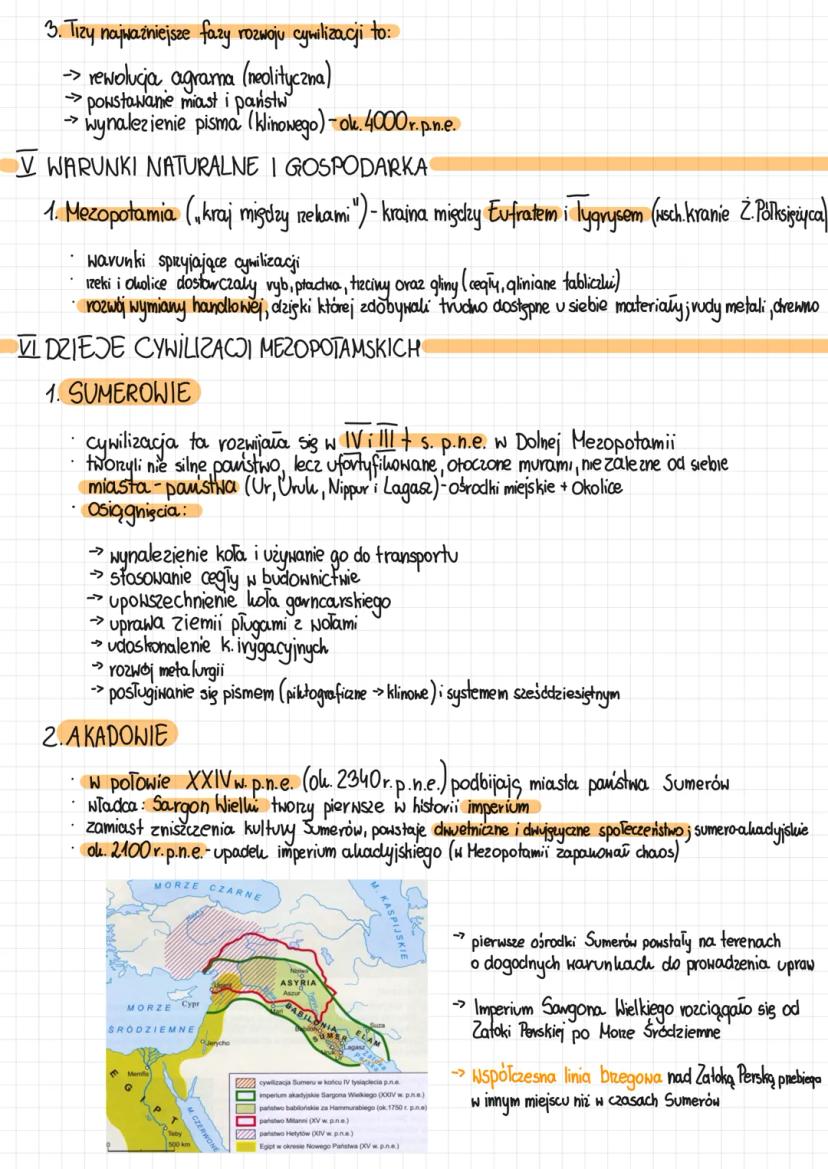 3. Trzy najważniejsze fazy rozwoju cywilizacji to:
→ rewolucja agrarna (neolityczna)
→ powstawanie miast i państw
→ wynalezienie pisma (klinowego) - ok. 4000 r. p.n.e.
V WARUNKI NATURALNE I GOSPODARKA
1. Mezopotamia („kraj między rzekami") - kraina między Eufratem i Tygrysem (wsch. kranie Ż. Półksiężyca)
· warunki sprzyjające cywilizacji
· rzeki i okolice dostarczały ryb, ptactwa, trzciny oraz gliny (cegły, gliniane tabliczki)
· rozwój wymiany handlowej, dzięki której zdobywali trudno dostępne u siebie materiały; rudy metali, drewno
VI DZIEJE CYWILIZACJI MEZOPOTAMSKICH
1. SUMEROWIE
· cywilizacja ta rozwijała się w IV i III t s. p.n.e. w Dolnej Mezopotamii
· tworzyli nie silne państwo, lecz ufortyfikowane, otoczone murami, niezależne od siebie
miasta - państwa (Ur, Uruk, Nippur i Lagasz) - ośrodki miejskie + okolice
· Osiągnięcia:
→ wynalezienie koła i używanie go do transportu
→ stosowanie cegły w budownictwie
→ upowszechnienie koła garncarskiego
→ uprawa ziemii pługami z wołami
→ udoskonalenie k. irygacyjnych
→ rozwój metalurgii
→ posługiwanie się pismem (piktograficzne → klinowe) i systemem sześćdziesiętnym
2. AKADOWIE
· w połowie XXIV w. p.n.e. (ok. 2340 r. p.n.e.) podbijają miasta państwa Sumerów
· władca: Sargon Wielki tworzy pierwsze w historii imperium
· zamiast zniszczenia kultury Sumerów, powstaje dwuetniczne i dwujęzyczne społeczeństwo; sumero-akadyjskie
· ok. 2100 r. p.n.e. - upadek imperium akadyjskiego (w Mezopotamii zapanował chaos)
MORZE CZARNE
M. KASPIJSKIE
Niniwa
ASYRIA
Ugarit
Aszur
Cypr
Mari
MORZE
ŚRÓDZIEMNE
BABILONIA
Babilon
SUMER
ELAM
Suza
Lagasz
Uruk
Ur
Zatoka
Perska
Jerycho
Memfis
EGIPT
M. CZERWONE
Teby
0 500 km
cywilizacja Sumeru w końcu IV tysiąclecia p.n.e.
imperium akadyjskie Sargona Wielkiego (XXIV w. p.n.e.)
państwo babilońskie za Hammurabiego (ok.1750 r. p.n.e)
państwo Mitanni (XV w. p.n.e.)
państwo Hetytów (XIV w. p.n.e.)
Egipt w okresie Nowego Państwa (XV w. p.n.e.)
→ pierwsze ośrodki Sumerów powstały na terenach
o dogodnych warunkach do prowadzenia upraw
→ Imperium Sargona Wielkiego rozciągało się od
Zatoki Perskiej po Morze Śródziemne
→ współczesna linia brzegowa nad Zatoką Perską przebiega
w innym miejscu niż w czasach Sumerów